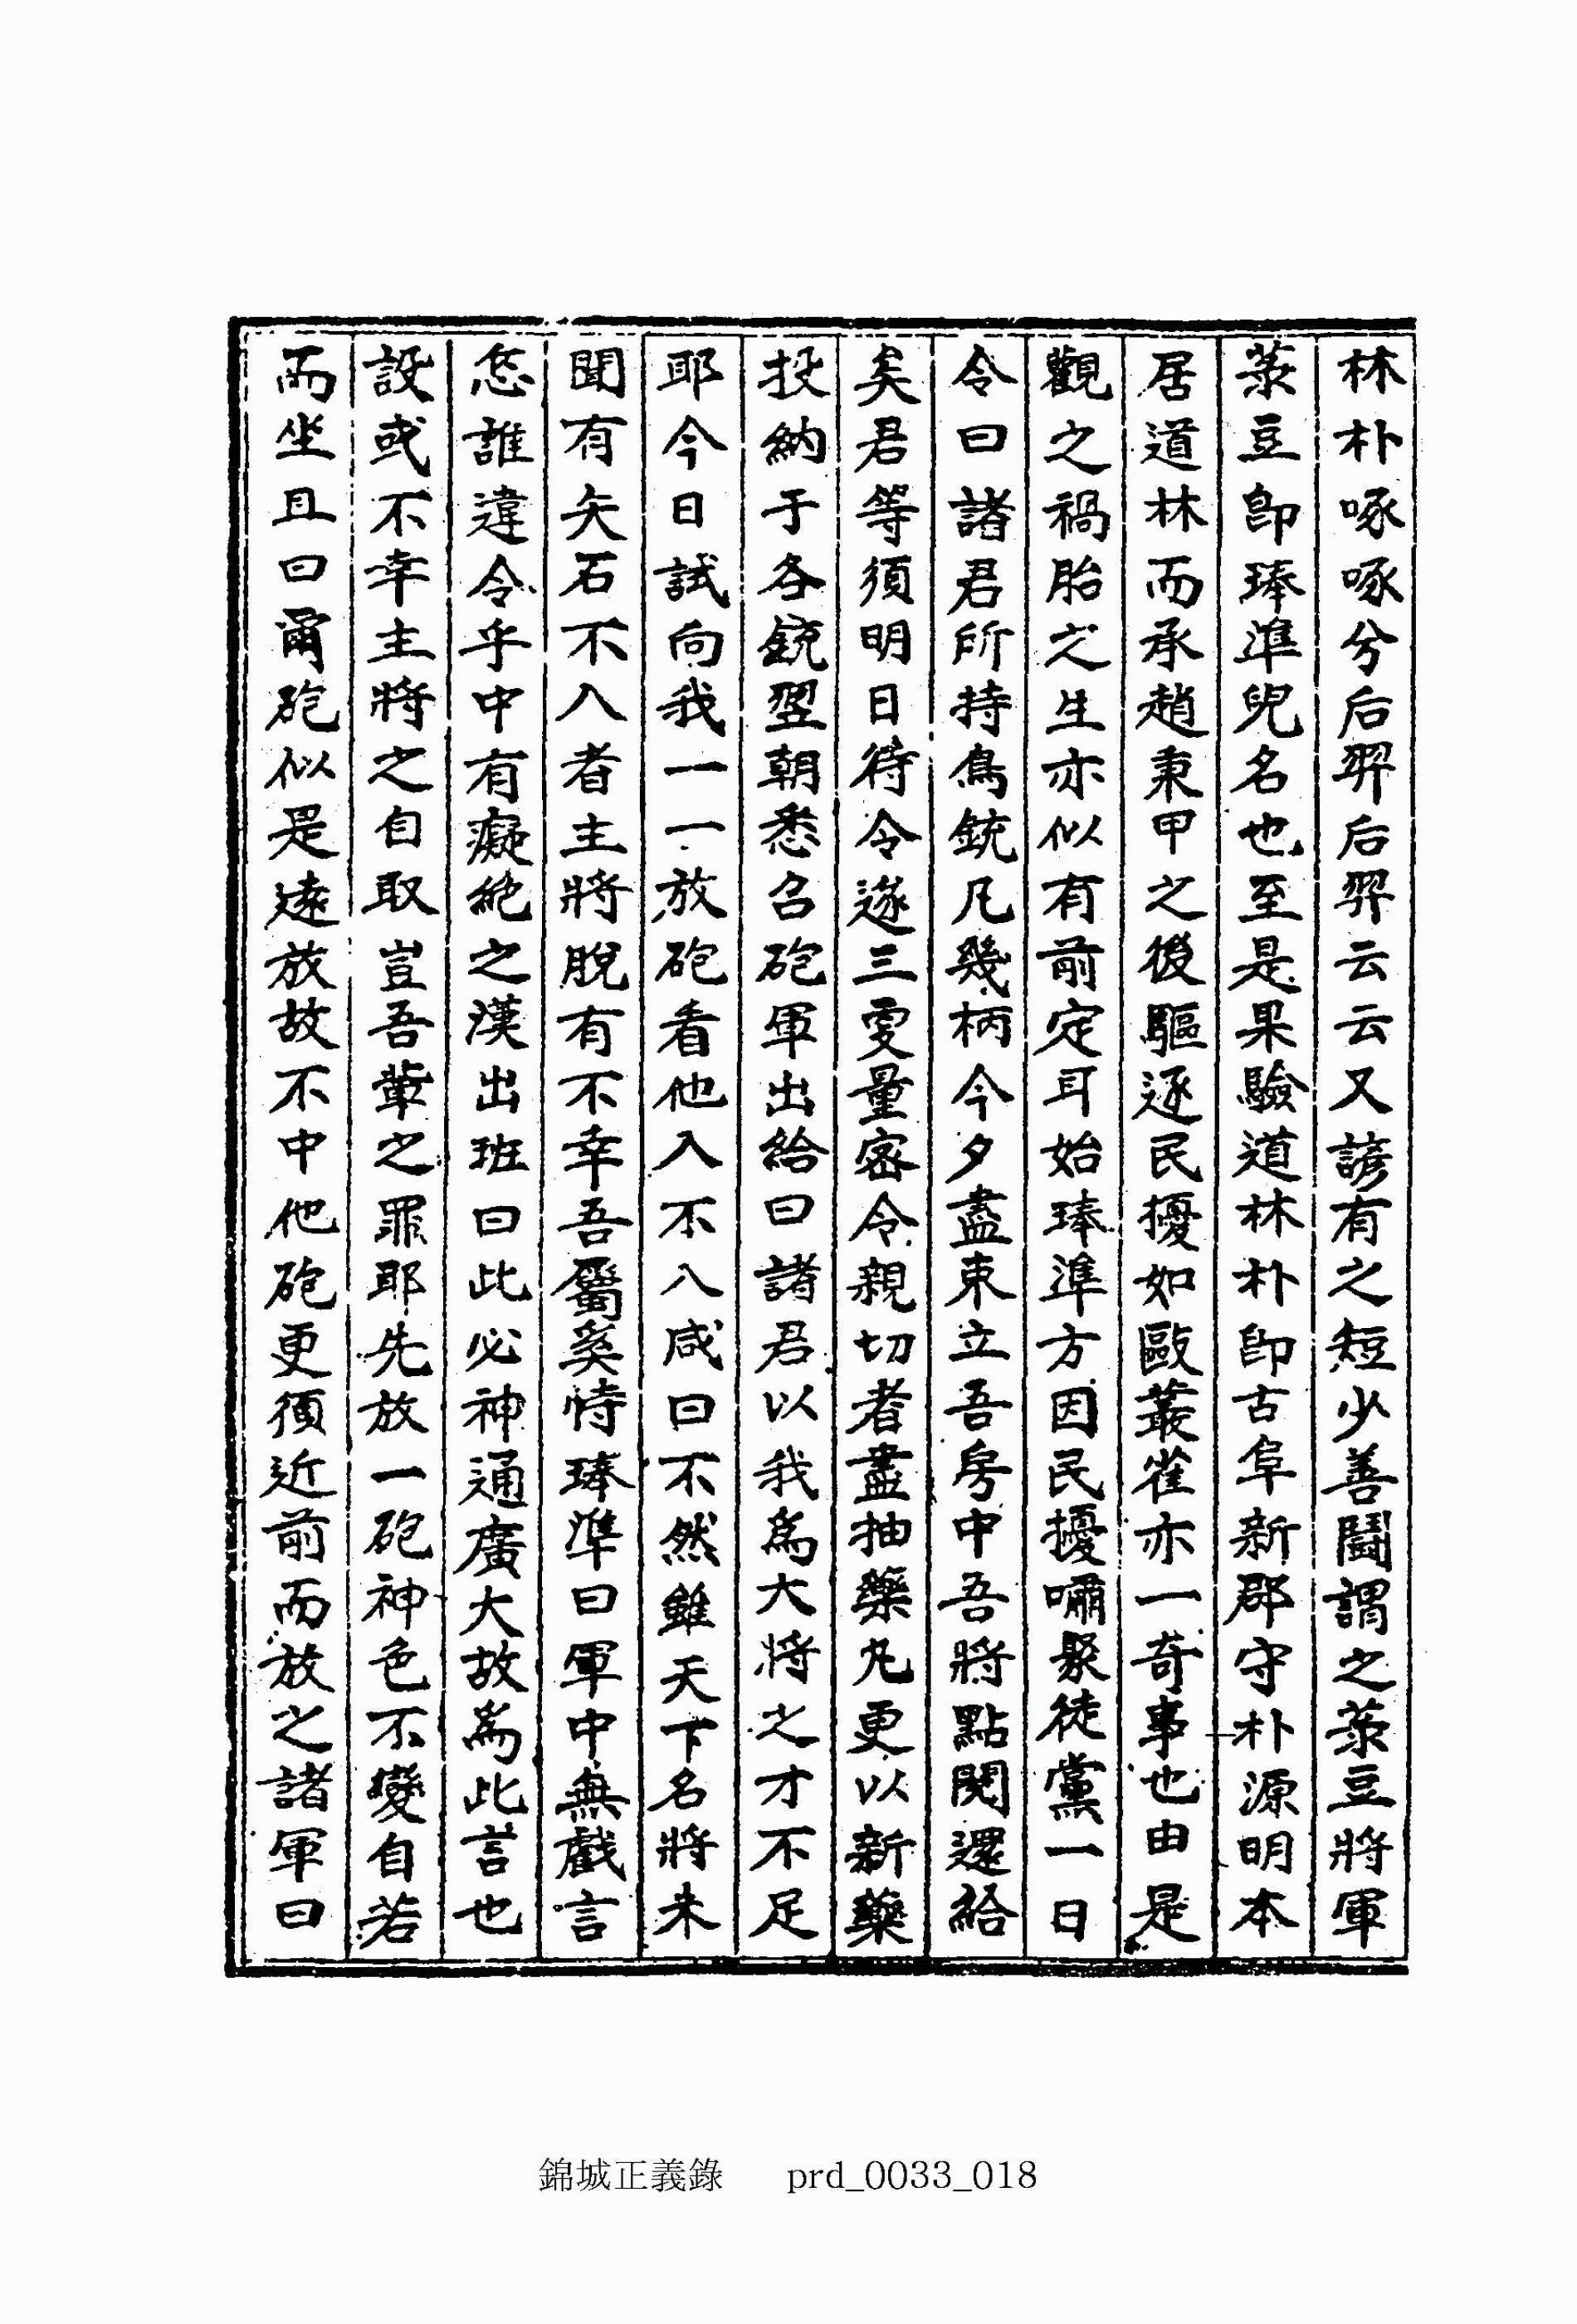 林朴啄啄兮后羿后羿云云又諺有之短少善鬪謂之菉豆將軍
菉豆卽琫準兒名也至是果驗道林朴卽古阜新郡守朴源明本
居道林而承趙秉甲之後驅逐民擾如歐叢雀亦一奇事也由是
觀之禍胎之生亦似有前定耳始琫準方因民擾嘯聚徒黨一日
令曰諸君所持鳥銃凡幾柄今夕盡束立吾房中吾將點閱還給
矣君等須明日待令遂三更量密令親切者盡抽藥凡更以新藥
投納于各銃翌朝悉召砲軍出給曰諸君以我爲大將之才不足
耶今日試向我一一放砲看他入不入咸曰不然雖天下名將未
聞有矢石不入者主將脫有不幸吾屬奚恃琫準曰軍中無戱言
恁誰違令乎中有癡絶之漢出班曰此必神通廣大故爲此言也
設或不幸主將之自取豈吾輩之罪耶先放一砲神色不變自若
而坐且曰爾砲似是遠放故不中他砲更須近前而放之諸軍曰
錦城正義錄 prd_0033_018